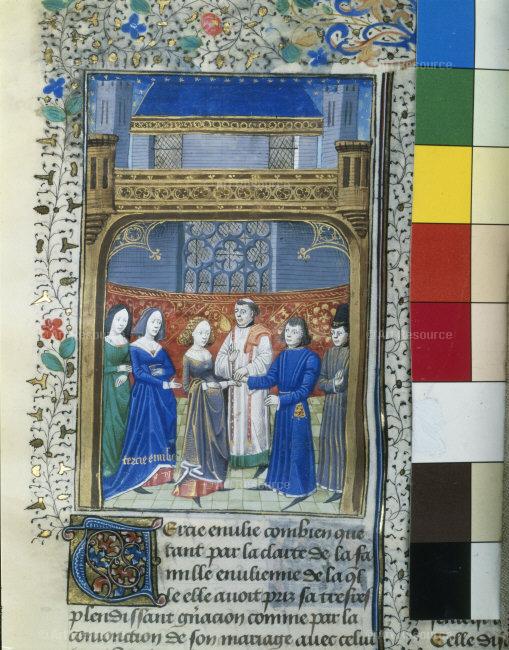 tercie emilie
Tercie emilie combien que
tant par la clarte de la fa
mille emilienne de la ql
le elle avoit pris sa tresres
plendissant gnacion comme par la
conionction de son mariage avec celui
Celle di
© Art Resource